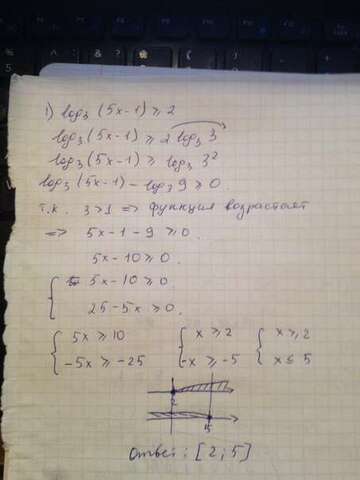 1) log₃(5x-1) ≥ 2
log₃(5x-1) ≥ 2 log₃ 3
log₃(5x-1) ≥ log₃ 3²
log₃(5x-1) - log₃ 9 ≥ 0.
т.к. 3>1 => функция возрастает
=> 5x-1-9 ≥ 0.
5x-10 ≥ 0.
{ 5x-10 ≥ 0
25-5x ≥ 0.
{ 5x ≥ 10 { x ≥ 2 { x ≥ 2
-5x ≥ -25 -x ≥ -5 x ≤ 5
2
5
Ответ: [2; 5]